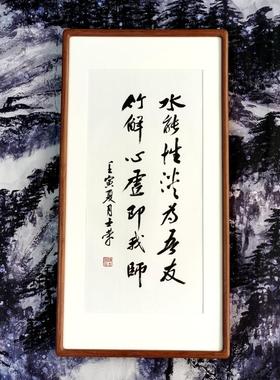 水能性淡為吾友
竹解心虛即我師
壬寅夏月士